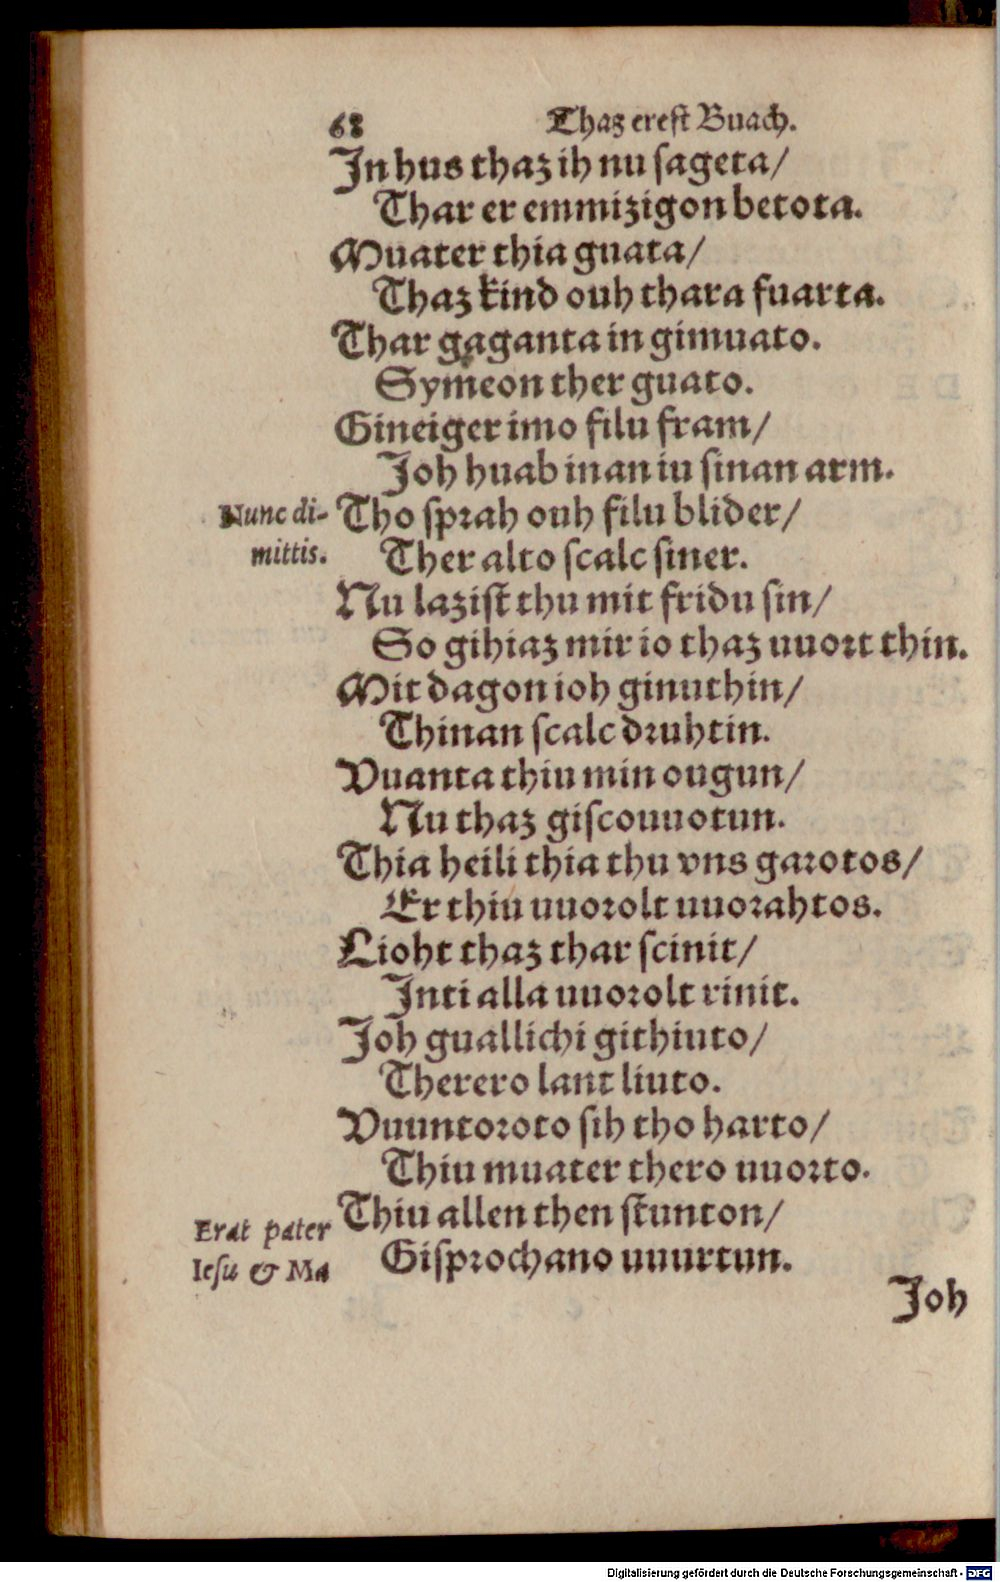 68 Thaz erest Buach.
Jn hus thaz ih nu sageta/
Thar er emmizigon betota.
Muater thia guata/
Thaz kind ouh thara fuarta.
Thar gaganta in gimuato.
Symeon ther guato.
Gineiger imo filu fram/
Joh huab inan iu sinan arm.
Nunc di-
mittis.
Tho sprah ouh filu blider/
Ther alto scalc siner.
Nu lazist thu mit fridu sin/
So gihiaz mir io thaz uuort thin.
Mit dagon ioh ginuthin/
Thinan scalc druhtin.
Vuanta thiu min ougun/
Nu thaz giscouuotun.
Thia heili thia thu vns garotos/
Er thiu uuorolt uuorahtos.
Lioht thaz thar scinit/
Jnti alla uuorolt rinit.
Joh guallichi githiuto/
Therero lant liuto.
Vuuntoroto sih tho harto/
Thiu muater thero uuorto.
Erat pater
Iesu & Ma
Thiu allen then stunton/
Gisprochano uuurtun.
Joh
Digitalisierung gefördert durch die Deutsche Forschungsgemeinschaft - DFG